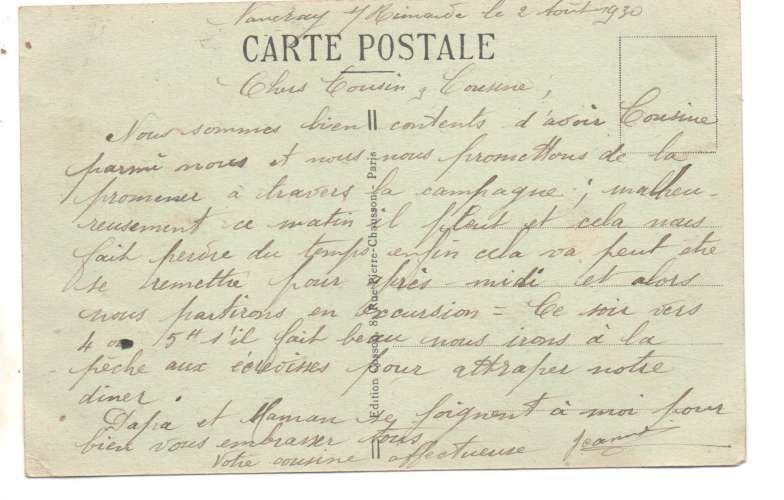 Nancray s/ Rimarde le 2 Août 1930
CARTE POSTALE
Chers Cousin & Cousine,
Nous sommes bien contents d'avoir Cousine
parmi nous et nous nous promettons de la
promener à travers la campagne ; malheu-
reusement ce matin il pleut et cela nous
fait perdre du temps enfin cela va peut etre
se remettre pour après-midi et alors
nous partirons en excursion = Ce soir vers
4 ou 5H s'il fait beau nous irons à la
pêche aux écrevisses pour attraper notre
diner.
Papa et Maman se joignent à moi pour
bien vous embrasser tous
Votre cousine affectueuse
Edition Cosson, 8, Rue Pierre-Chausson, Paris